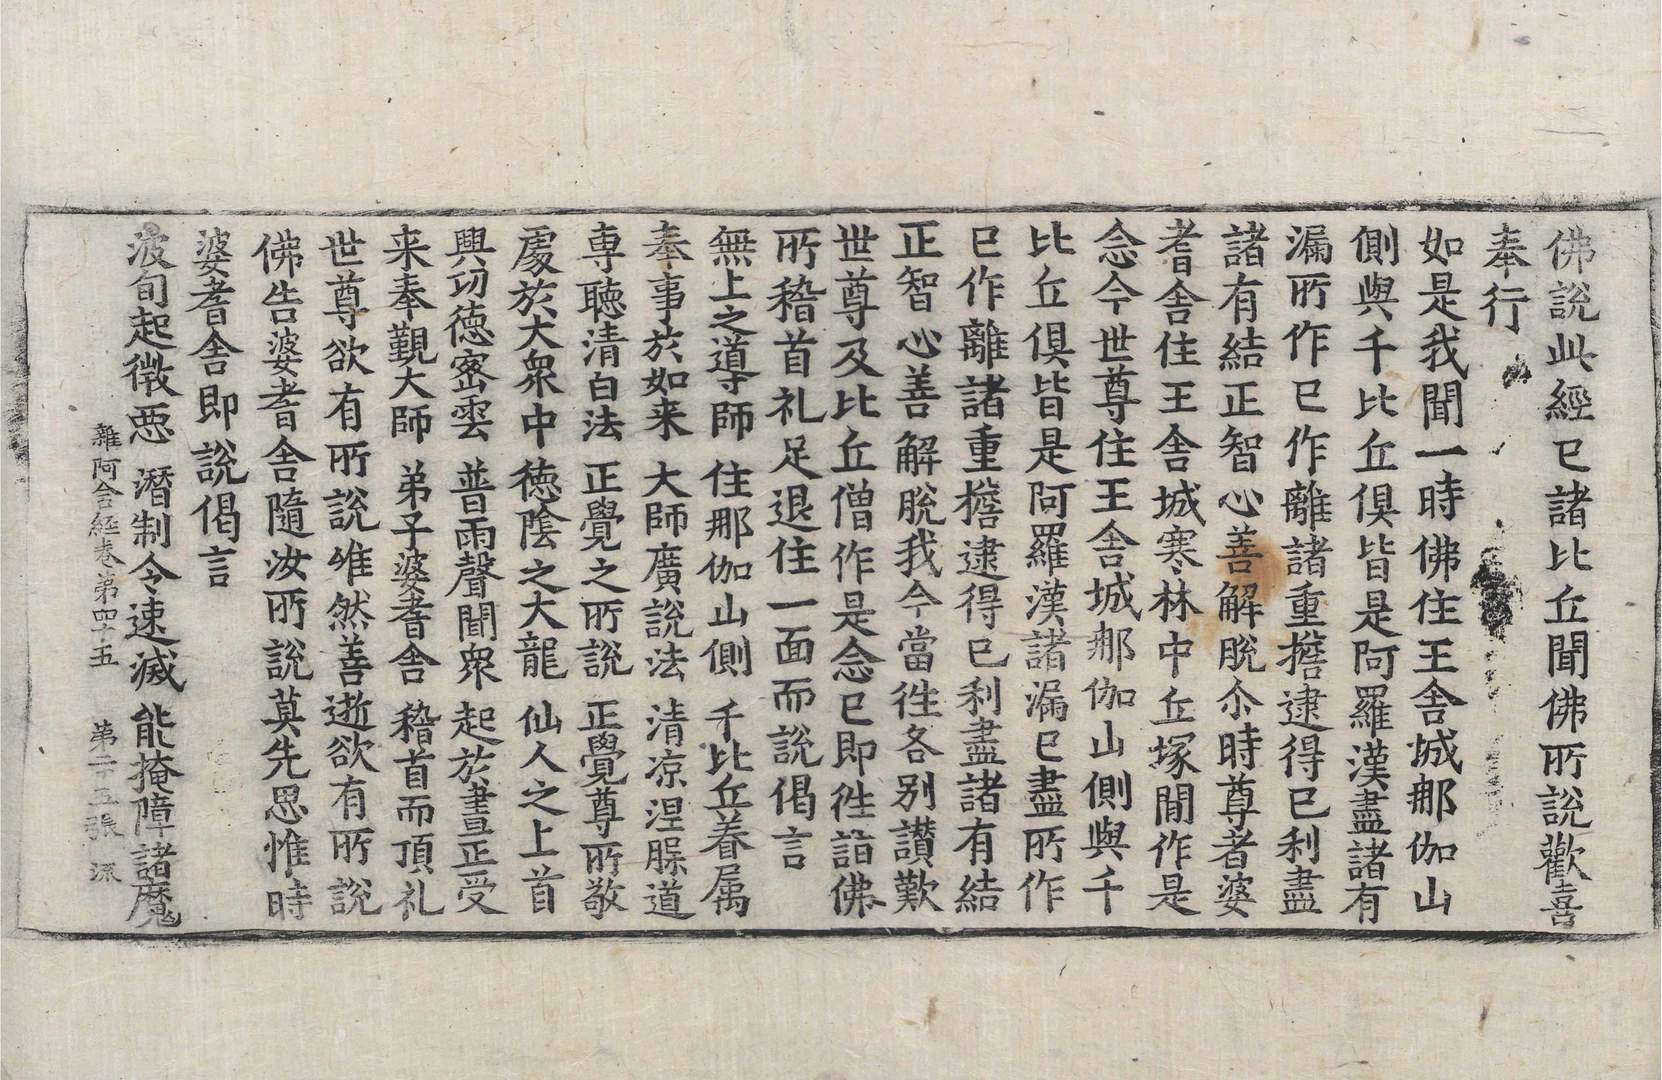 佛說此經已諸比丘聞佛所說歡喜
奉行
如是我聞一時佛住王舍城那伽山
側與千比丘俱皆是阿羅漢盡諸有
漏所作已作離諸重擔逮得已利盡
諸有結正智心善解脫尒時尊者婆
耆舍住王舍城寒林中丘塚閒作是
念今世尊住王舍城那伽山側與千
比丘俱皆是阿羅漢諸漏已盡所作
已作離諸重擔逮得已利盡諸有結
正智心善解脫我今當往各別讃歎
世尊及比丘僧作是念已即往詣佛
所稽首礼足退住一面而說偈言
無上之導師 住那伽山側 千比丘眷属
奉事於如来 大師廣說法 清凉涅槃道
専聴清白法 正覺之所說 正覺尊所敬
處於大衆中 徳陰之大龍 仙人之上首
興功徳密雲 普雨聲聞衆 起於晝正受
来奉覲大師 弟子婆耆舍 稽首而頂礼
世尊欲有所說唯然善逝欲有所說
佛告婆耆舍隨汝所說莫先思惟時
婆耆舍即說偈言
波旬起微惡 潛制令速滅 能掩障諸魔
雜阿含經卷第四十五 第二十五張